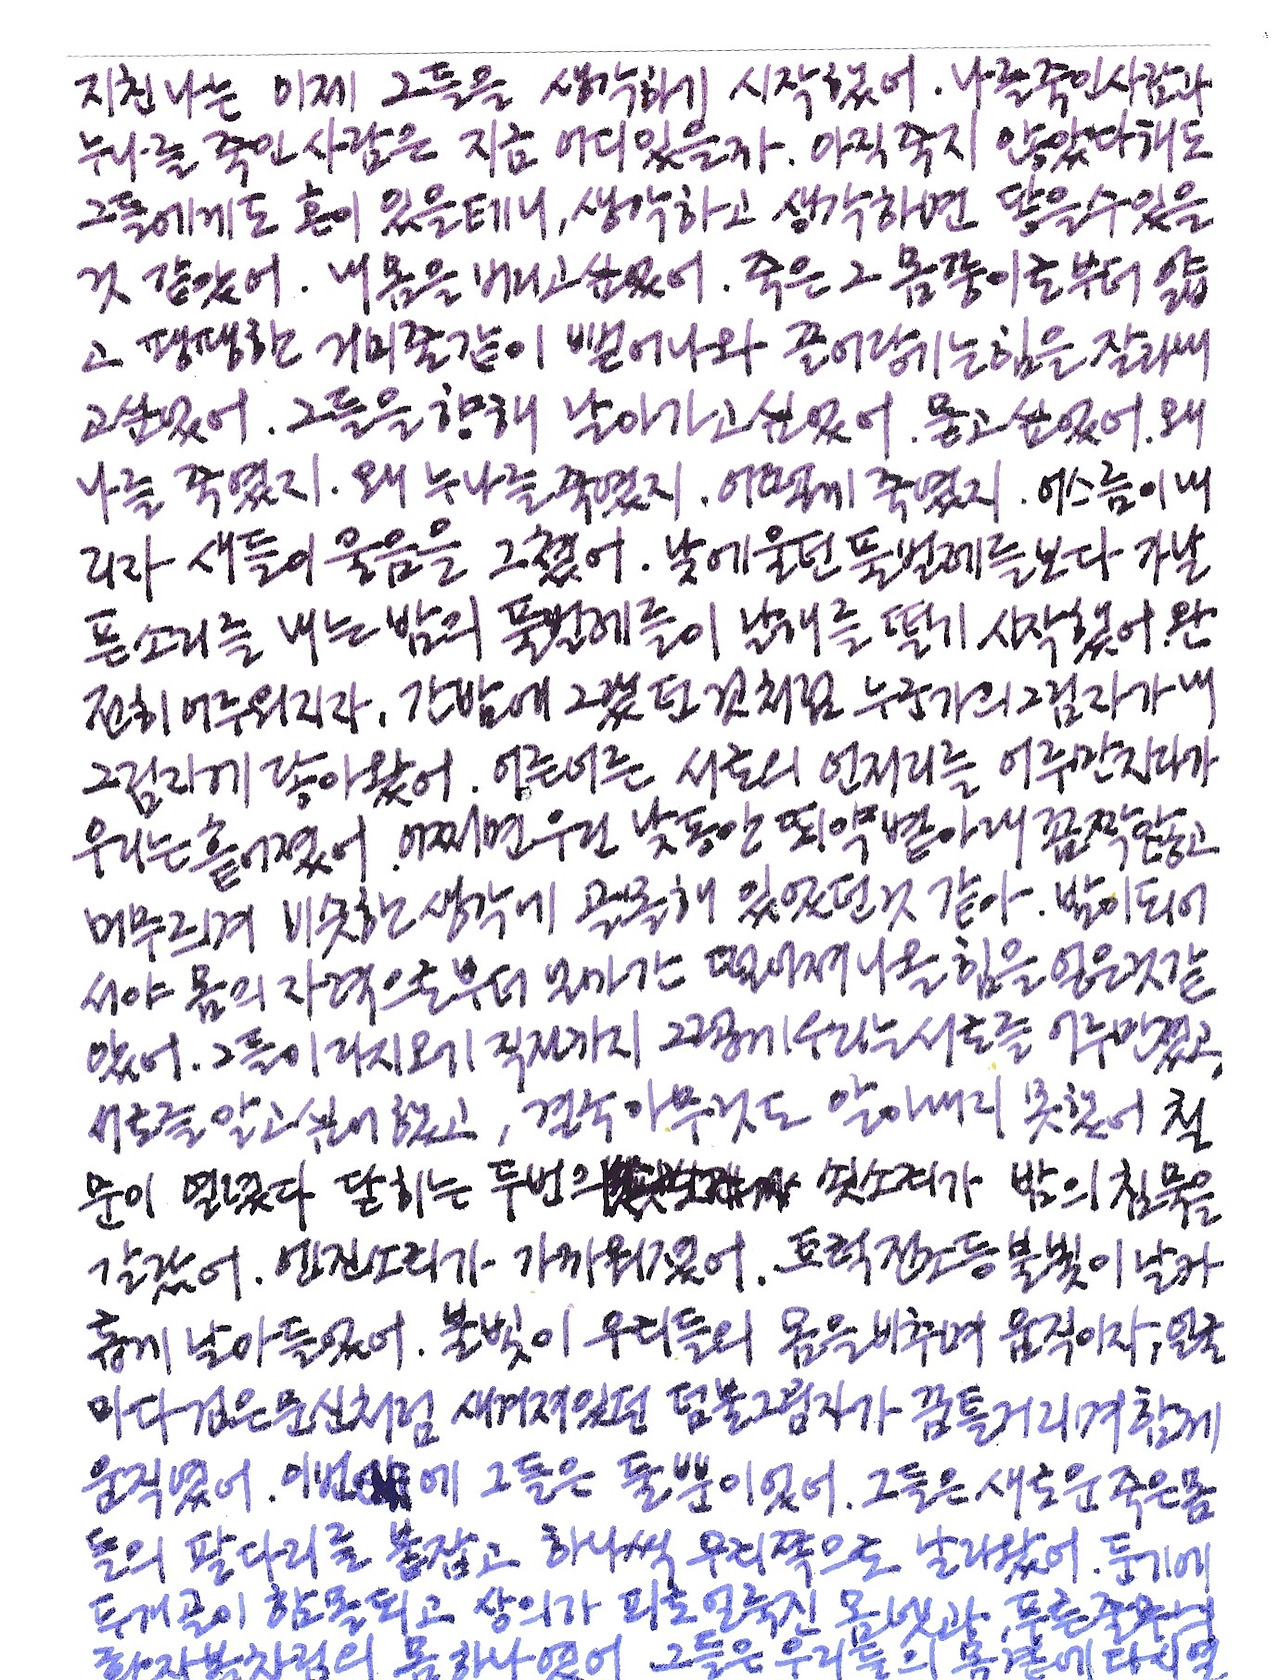 지친 나는 이제 그들을 생각하기 시작했어. 나를 죽인 사람과
누나를 죽인 사람은 지금 어디 있을까. 아직 죽지 않았다 해도
그들에게도 혼이 있을테니, 생각하고 생각하면 닿을 수 있을
것 같았어. 내 몸을 버리고 싶었어. 죽은 그 몸뚱이로부터 얇
고 팽팽한 거미줄같이 뻗어나와 끌어당기는 힘을 잘라내
고 싶었어. 그들을 향해 날아가고 싶었어. 묻고 싶었어. 왜
나를 죽였지. 왜 누나를 죽였지. 어떻게 죽였지. 어스름이 내
리자 새들이 울음을 그쳤어. 낮에 울던 풀벌레들보다 가냘
픈 소리를 내는 밤의 풀벌레들이 날개를 떨기 시작했어. 완
전히 어두워지자, 간밤에 그랬던 것처럼 누군가의 그림자가 내
그림자에 닿아왔어. 어른어른 서로의 언저리를 어루만지다가
우리는 흩어졌어. 어쩌면 우린 낮동안 뙤약볕 아래 꼼짝않고
머무르며 비슷한 생각에 골몰해 있었던 것 같아. 밤이 되어
서야 몸의 자력으로부터 얼마간 떨어져 나올 힘을 얻은 것 같
았어. 그들이 다시 오기 직전까지 그렇게 우리는 서로를 어루만졌고,
서로를 알고 싶어했고, 결국 아무것도 알아내지 못했어 철
문이 열렸다 닫히는 두번의 쇳소리가 밤의 침묵을
갈랐어. 엔진소리가 가까워졌어. 트럭 전조등 불빛이 날카
롭게 날아들었어. 불빛이 우리들의 몸을 비추며 움직이자, 얼굴
마다 검은 문신처럼 새겨져 있던 덤불 그림자가 꿈틀거리며 함께
움직였어. 이번에 그들은 둘뿐이었어. 그들은 새로운 죽은 몸
들의 팔다리를 붙잡고 하나씩 우리쪽으로 날라왔어. 둔기에
두개골이 함몰되고 상의가 피로 얼룩진 몸 넷과, 푸른 줄무늬
환자복차림의 몸 하나였어 그들은 우리들의 몸 곁에 다시